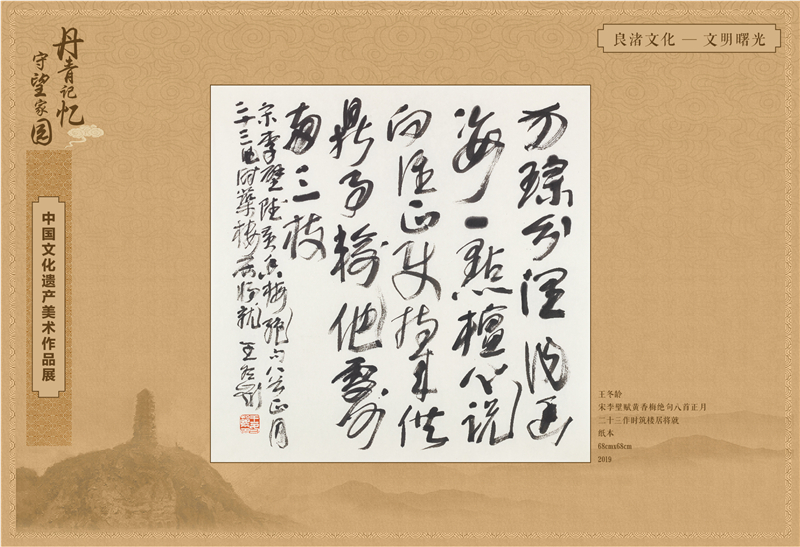 丹青记忆
守望家园
中国文化遗产美术作品展
良渚文化 — 文明曙光
分
海一點檀心説
向誰正使持来供
鼎 輸他
两三枝
宋李壁賦黄香梅绝句八首正月
二十三作时築楼居将就 王冬龄
王冬龄
宋李壁赋黄香梅绝句八首正月
二十三作时筑楼居将就
纸本
68cmx68cm
2019